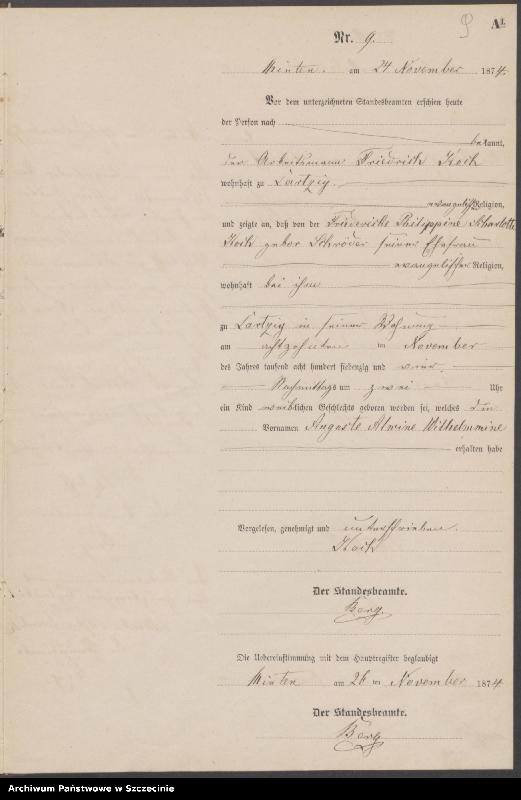 9
A1.
Nr. 9.
Minten am 24 November 1874.
Vor dem unterzeichneten Standesbeamten erschien heute
der Person nach
bekannt,
der Arbeitsmann Friedrich Koch
wohnhaft zu Lärtzig
evangelischer Religion,
und zeigte an, daß von der Friedericke Philippine Scharlotte
Koch gebor Schröder seiner Ehefrau
evangelischer Religion,
wohnhaft bei ihm
zu Lärtzig in seiner Wohnung
am achtzehnten ten November
des Jahres tausend acht hundert siebenzig und vier
Nachmittags um zwei Uhr
ein Kind weiblichen Geschlechts geboren worden sei, welches den
Vornamen Auguste Alwine Wilhelmmine
erhalten habe
Vorgelesen, genehmigt und unterschrieben.
Koch
Der Standesbeamte.
Berg.
Die Uebereinstimmung mit dem Hauptregister beglaubigt
Minten am 26 ten November 1874
Der Standesbeamte.
Berg
Archiwum Państwowe w Szczecinie